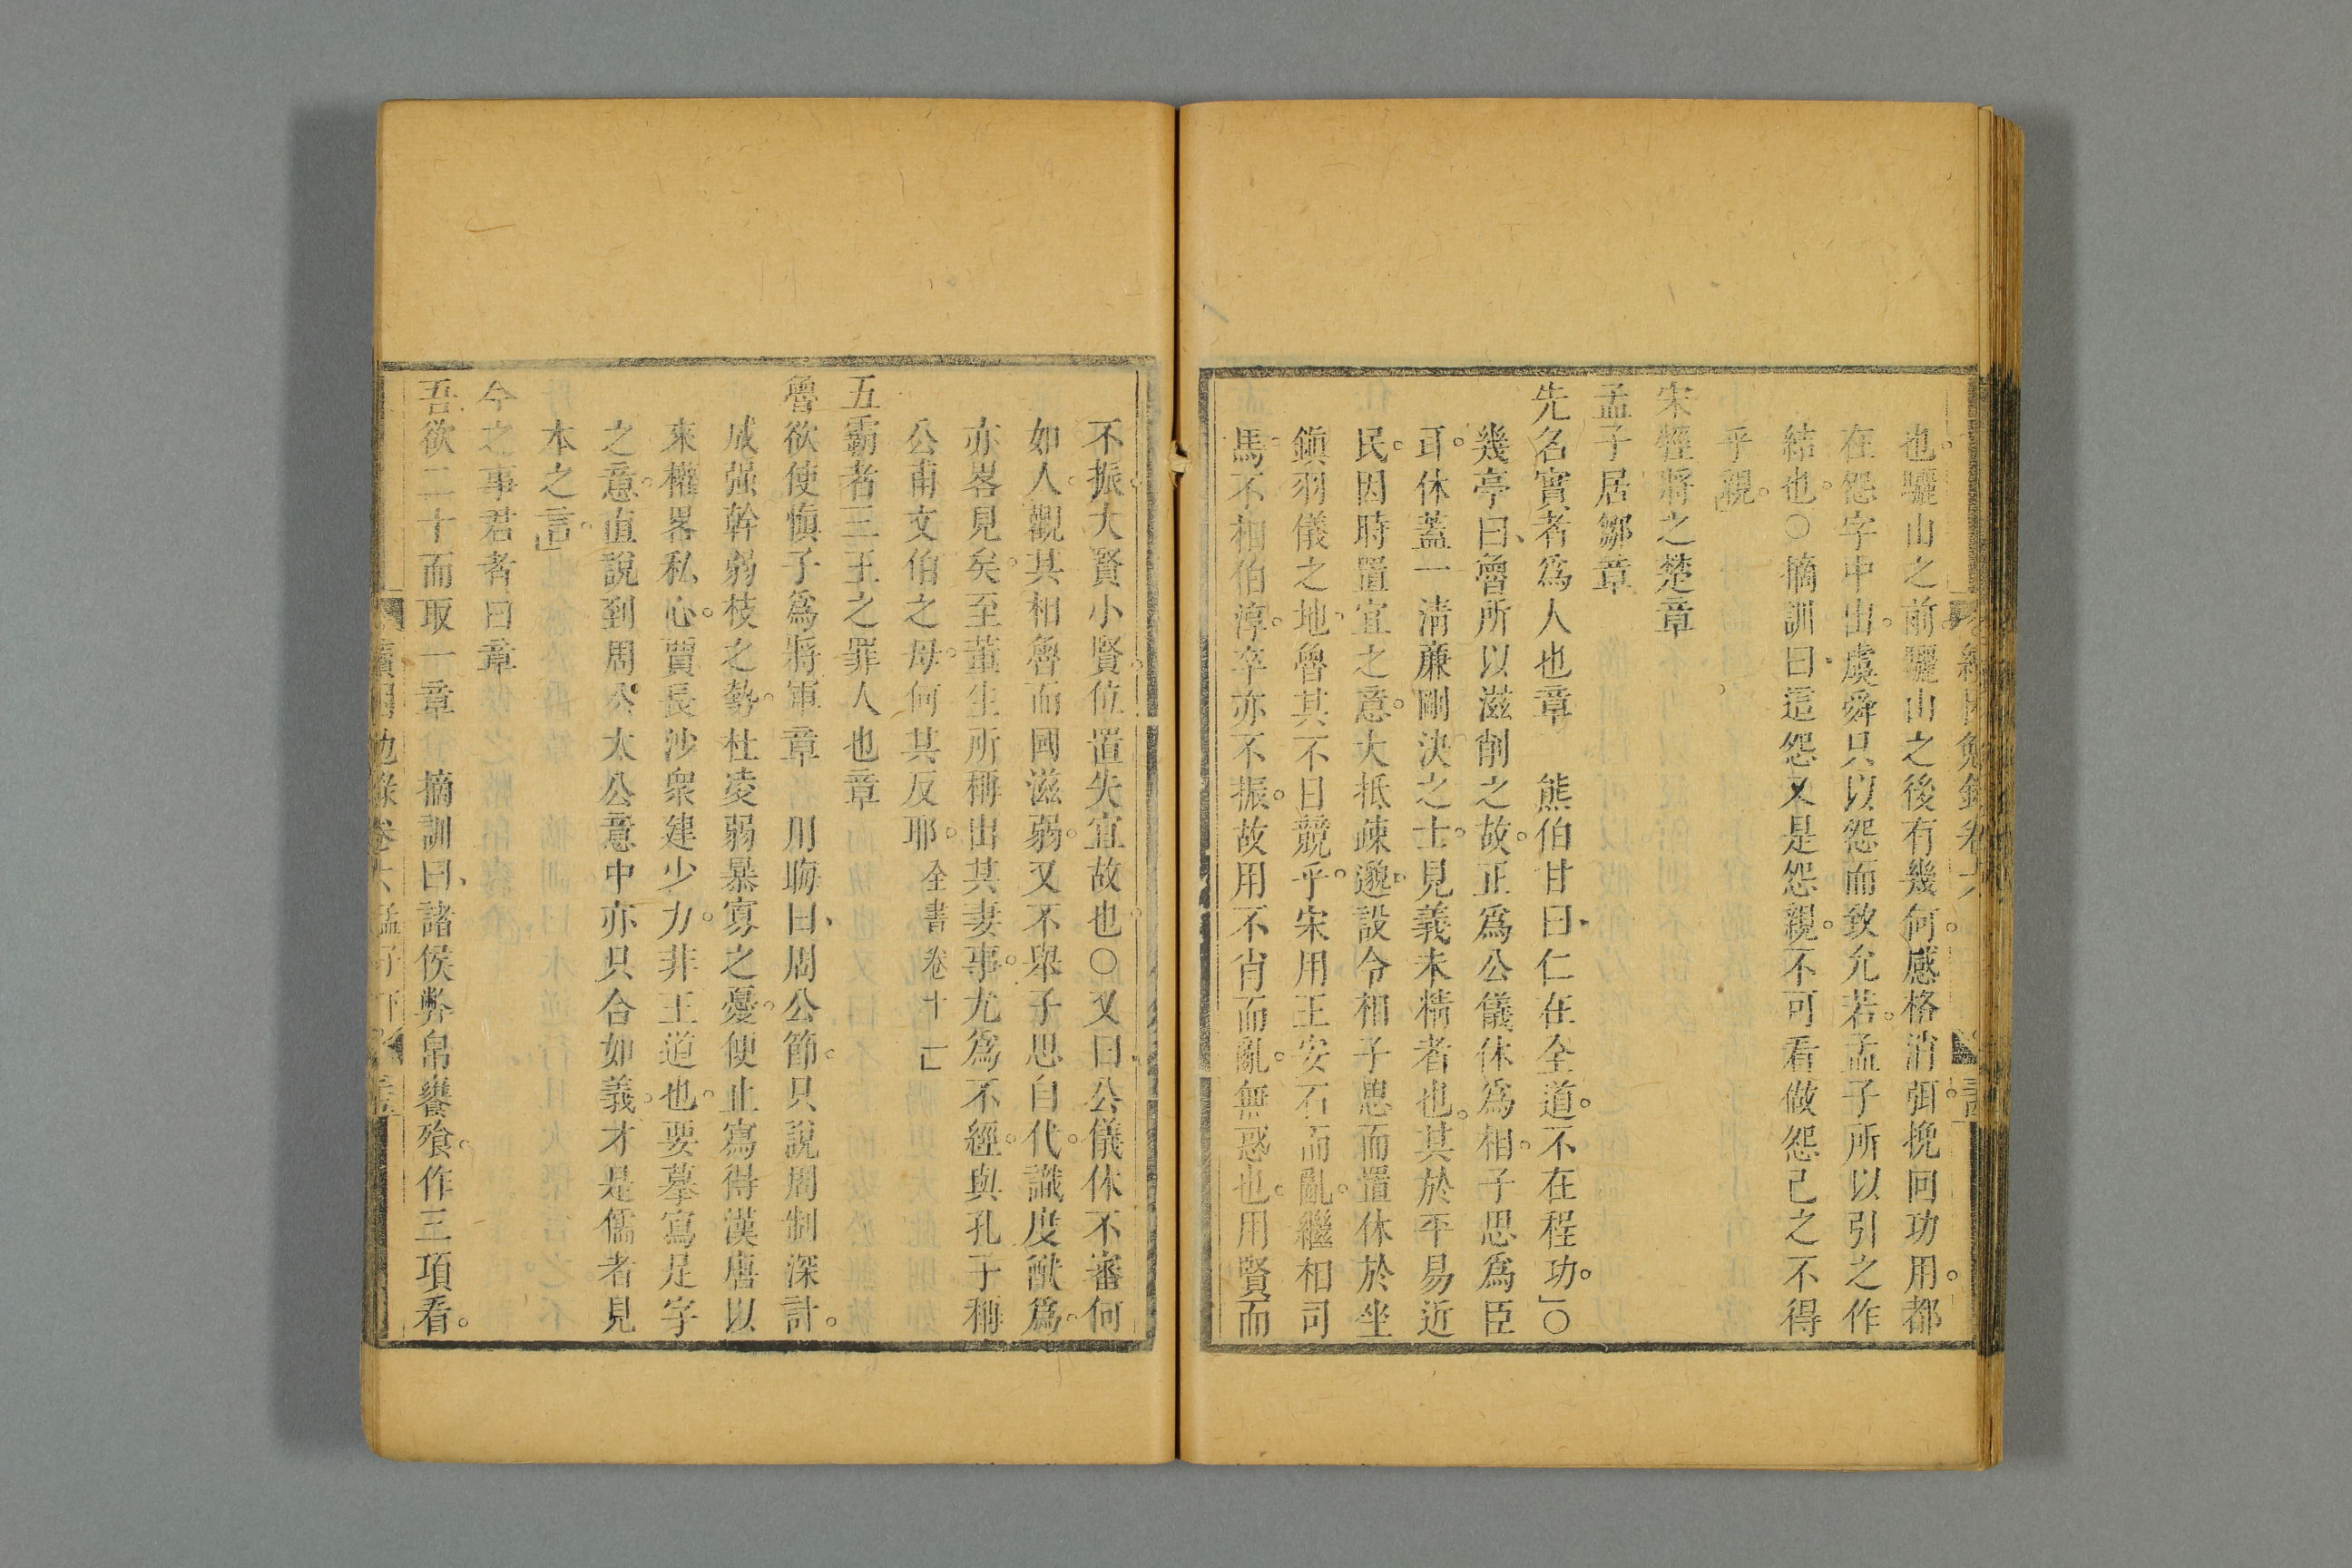 也驪山之前驪山之後有幾何感格消弭挽回功用都
在怨字中出虞舜只以怨而致允若孟子所以引之作
結也○摘訓曰這怨又是怨親不可看做怨己之不得
乎親
宋牼將之楚章
孟子居鄒章
先名實者爲人也章　熊伯甘曰仁在全道不在程功○
幾亭曰魯所以滋削之故正爲公儀休爲相子思爲臣
耳休蓋一清廉剛決之士見義未精者也其於平易近
民因時置宜之意大抵疎邈設令相子思而置休於坐
鎭羽儀之地魯其不日競乎宋用王安石而亂繼相司
馬不相伯淳卒亦不振故用不肖而亂無惑也用賢而
不振大賢小賢位置失宜故也○又曰公儀休不審何
如人觀其相魯而國滋弱又不舉子思自代識度猷爲
亦畧見矣至董生所稱出其妻事尤爲不經與孔子稱
公甫文伯之母何其反耶 全書卷十一
五霸者三王之罪人也章
魯欲使愼子爲將軍章　用晦曰周公節只說周制深計
成强幹弱枝之勢杜凌弱暴寡之憂便止寫得漢唐以
來權畧私心賈長沙衆建少力非王道也要摹寫是字
之意直說到周公太公意中亦只合如義才是儒者見
本之言
今之事君者曰章
吾欲二十而取一章　摘訓曰諸侯弊帛饔飱作三項看